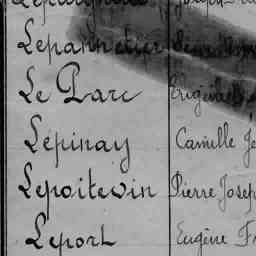 Lepannetier
Le Parc Eugène
Lépinay Camille Je
Lepoitevin Pierre Josep
Leport Eugène Fr